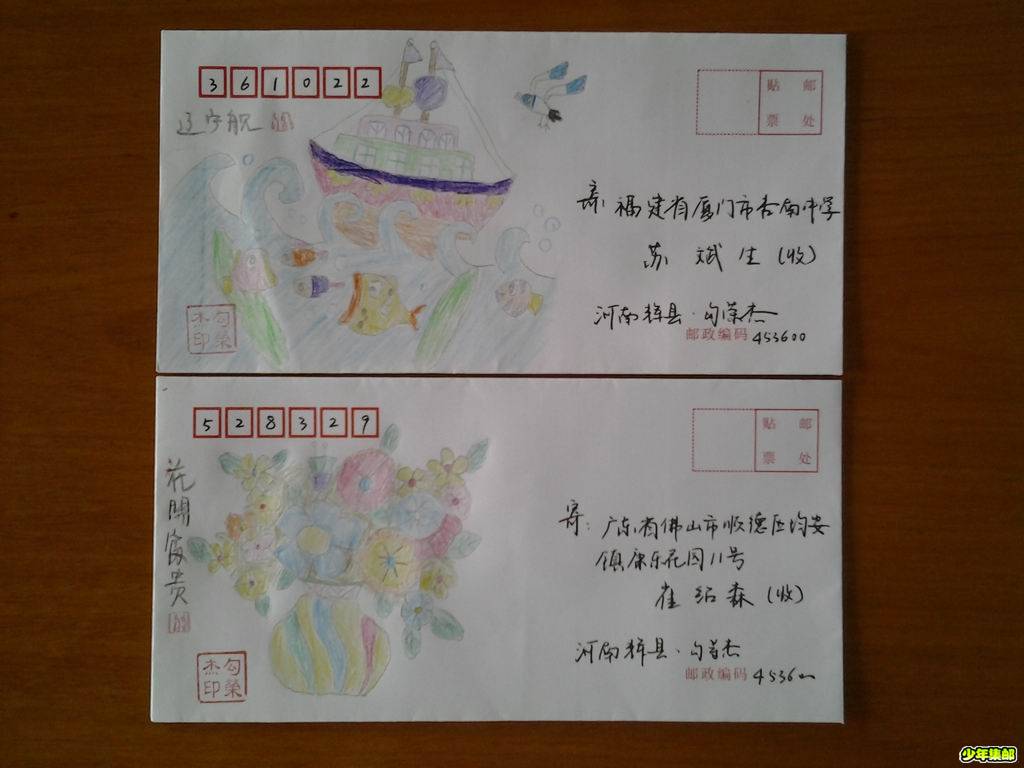 361022
辽宁舰
贴 邮
票 处
寄: 福建省厦门市杏南中学
苏 斌 生 (收)
河南辉县·勾荣杰
邮政编码 453600
杰勾
印榮
528329
花開富贵
贴 邮
票 处
寄: 广东省佛山市顺德区均安
镇康乐花园11号
崔 绍 森 (收)
河南辉县·勾荣杰
邮政编码 4536
杰勾
印榮
少年集邮